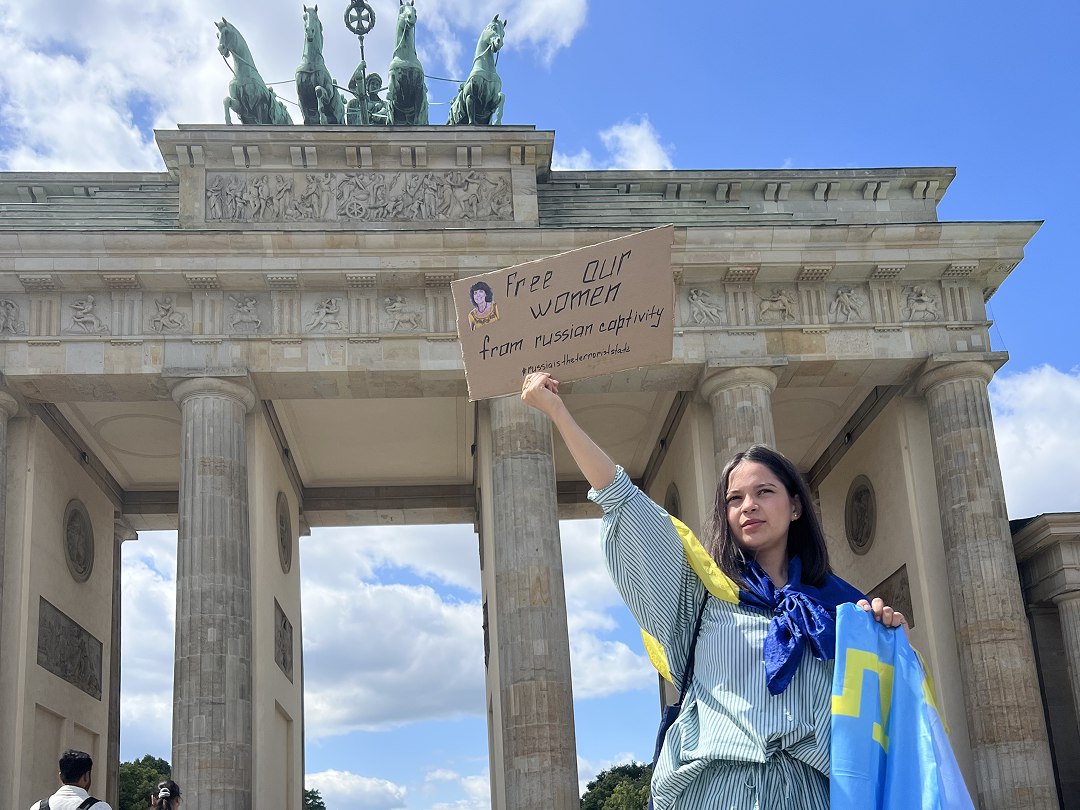 Free our
women
from russian captivity
#russiaistheterroriststate